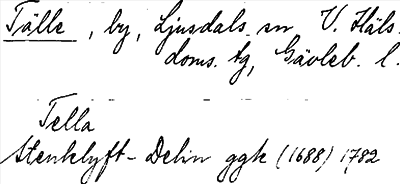 Tälle, by, Ljusdals sn V. Häls.
doms. tg, Gävleb. l.
Tella
Stenklyft-Delin ggk (1688) 1782